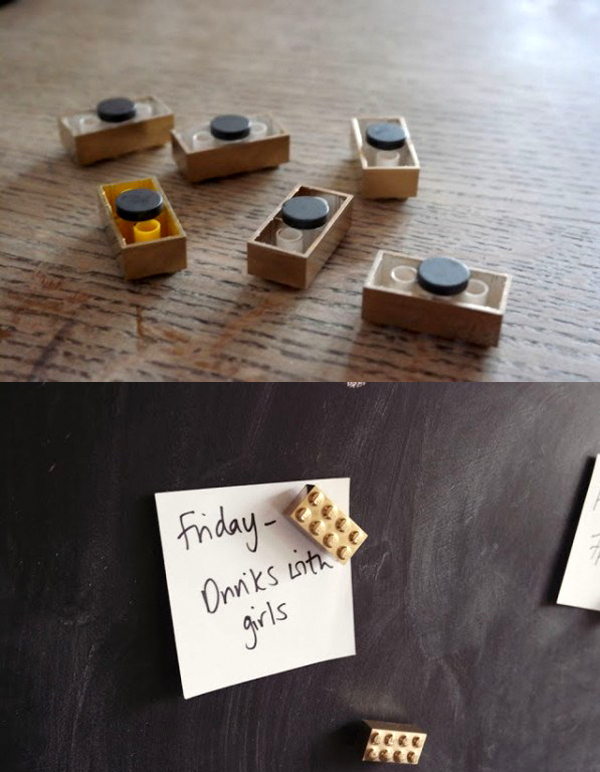 Friday -
Drinks with
girls